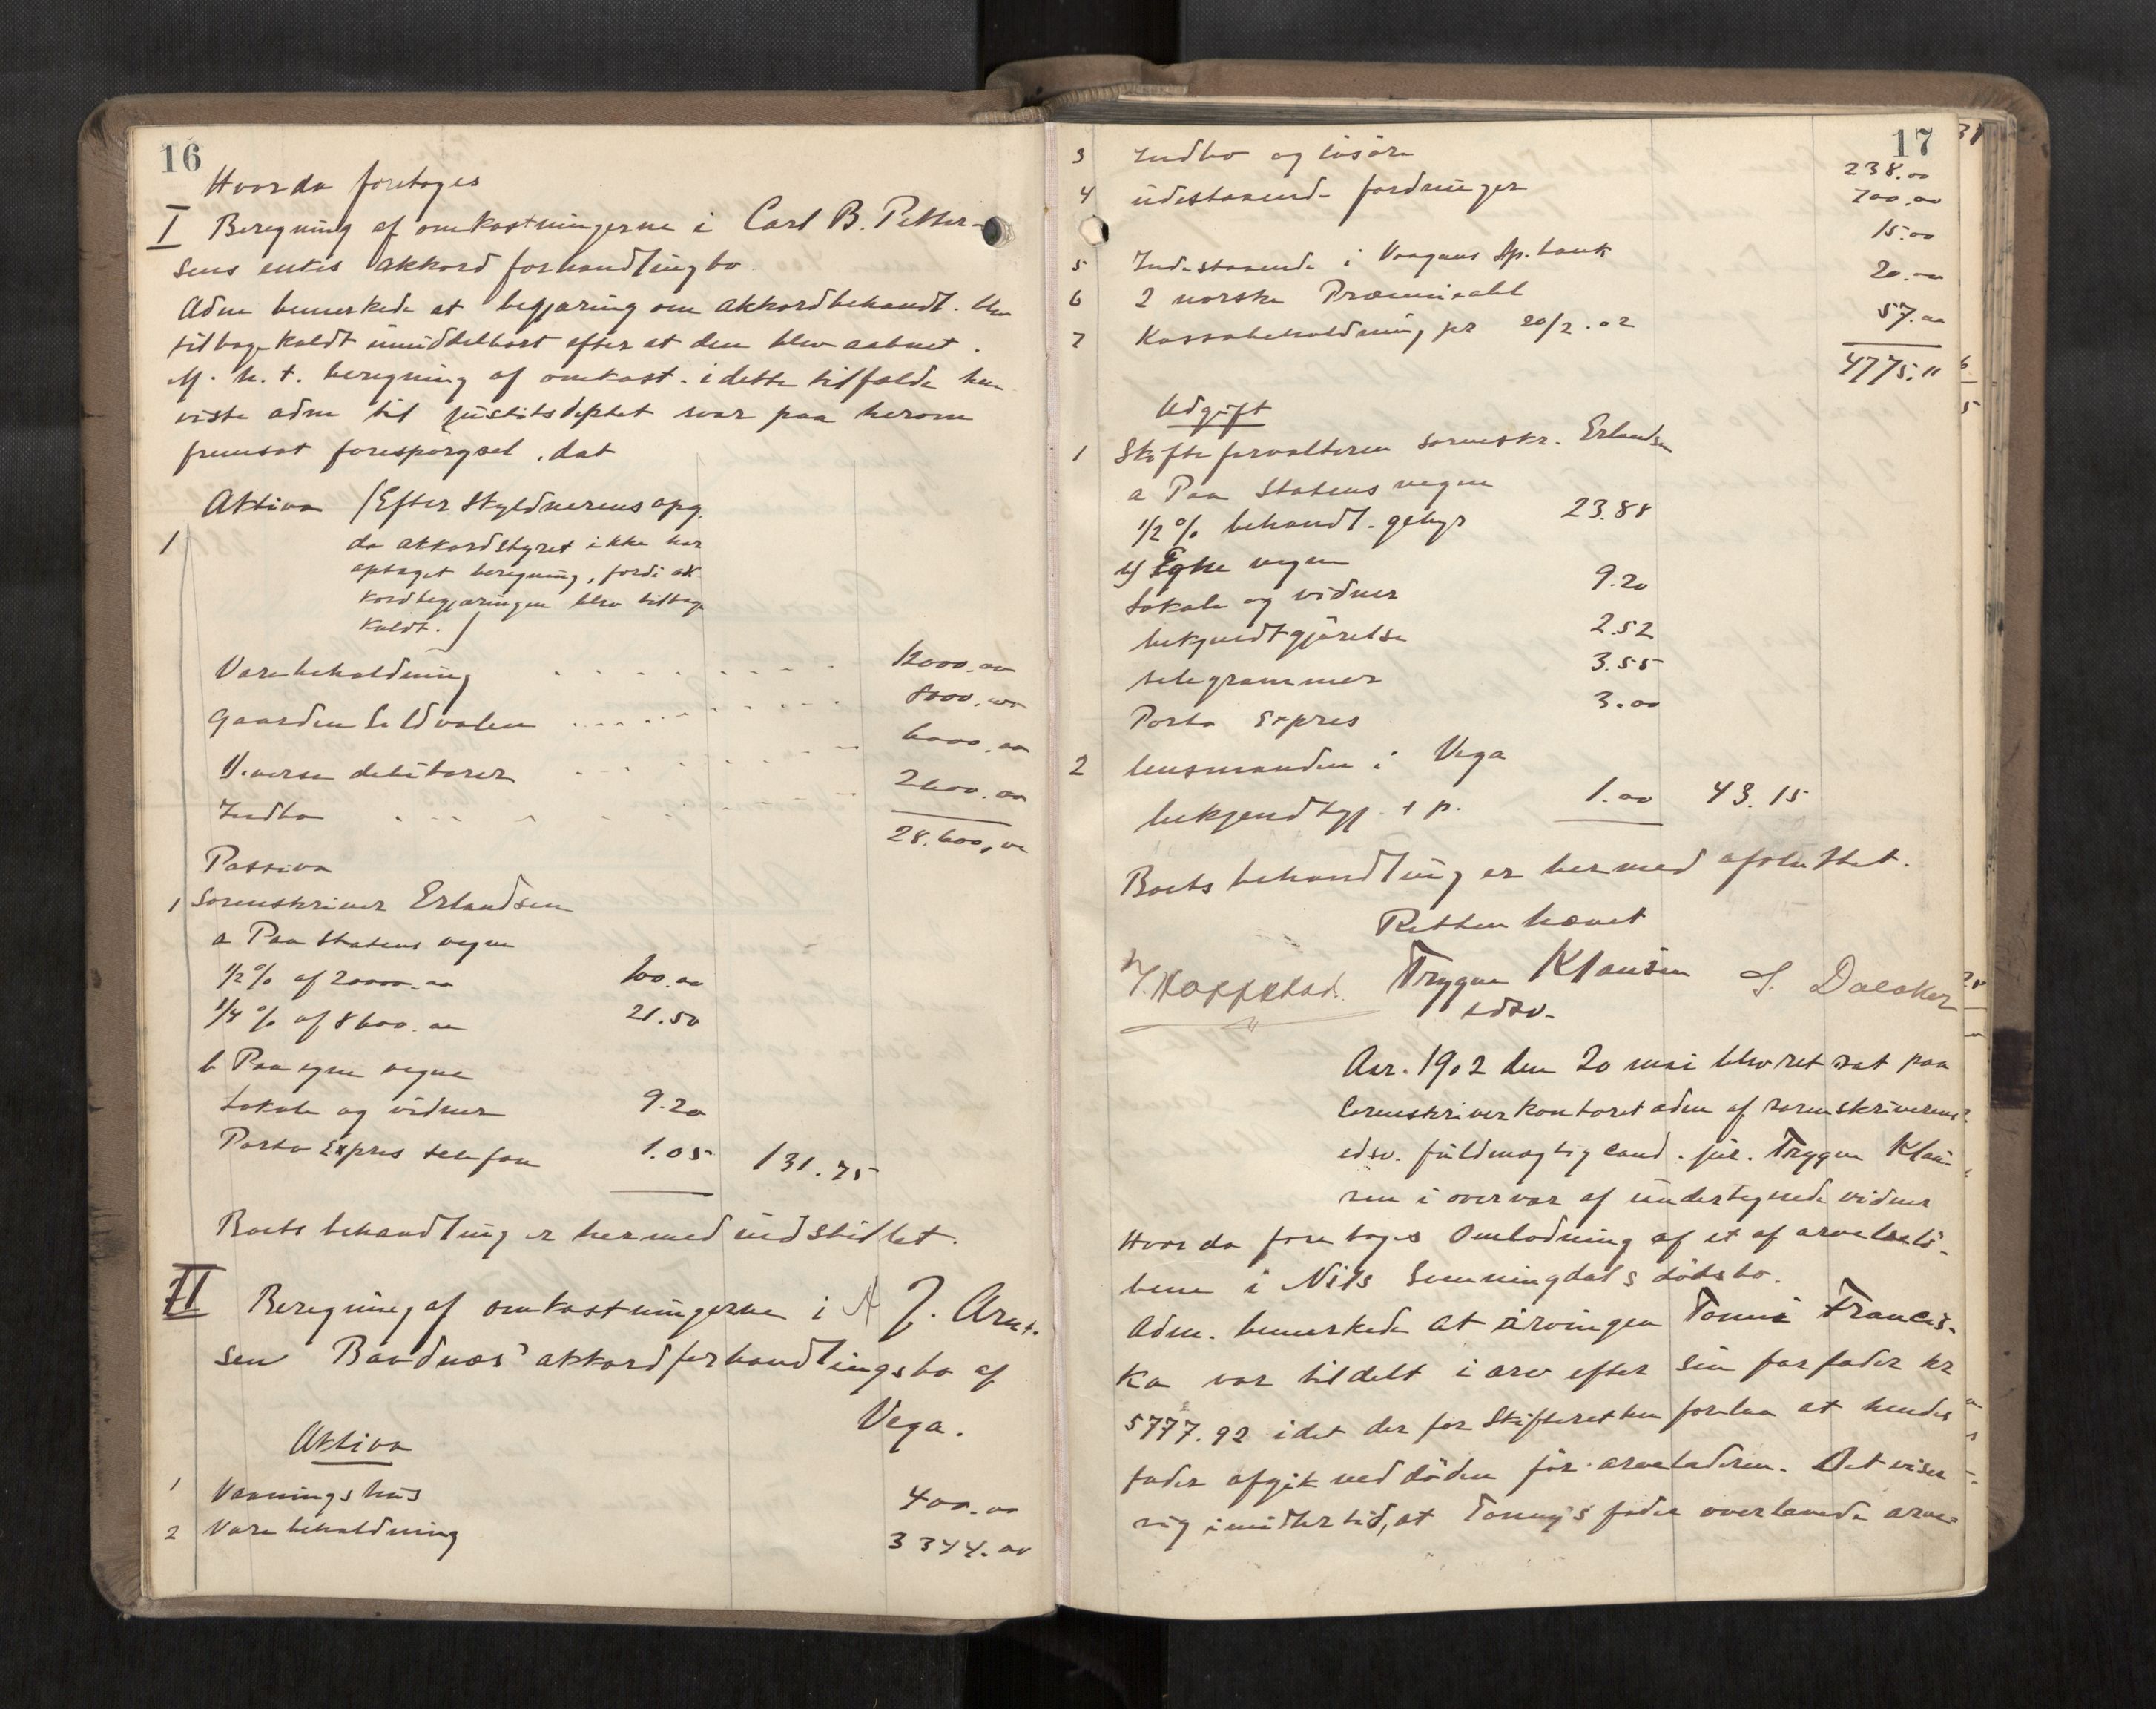 16
Hvorda foretages
I Beregning af omkostningerne i Carl B. Petter-
sens enkes akkordforhandlingbo
Adm bemerkede at begjæring om akkordbehandl. blev
tilbagekaldt umiddelbart efter at den blev aabnet.
M. h. t. beregning af omkost. i dette tilfælde hen
viste adm til justitsdeptet svar paa herom
fremsat forespørgsel, dat
Aktiva (Efter Skyldnerens opg.
1 da akkordstyret ikke har
optaget beregning, fordi ak
kordbegjæringen blev tilbage
kaldt.)
Varebeholdning 12000.00
Gaarden Sildvalen 8000.00
Diverse debitorer 6000.00
Indbo 2600.00
28.600,00
Passiva
1 Sorenskriver Erlandsen
a Paa Statens vegne
1/2% af 20000.00 100.00
1/4% af 8600.00 21.50
b Paa egne vegne
Lokale og vidner 9.20
Porto Expres telefon 1.05 131.75
Boets behandling er hermed indstillet.
II Beregning af omkostningerne i A J. Arnt.
sen Bandnæs' akkordforhandlingsbo af
Vega.
Aktiva
1 Vaaningshus 400.00
2 Varebeholdning 3344.00
17
3 Indbo og løsøre 238.00
4 udestaaende fordringer 700.00
5 Indestaaende i Vaagans Sp.bank 15.00
6 2 norske Præmieobl 20.00
7 Kassabeholdning pr 20/2.02 57.00
4775.11
Udgift
1 Skifteforvalteren sorenskr. Erlandsen
a Paa Statens vegne
1/2% behandl.gebyr 23.88
b) Egne vegne
Lokale og vidner 9.20
bekjendtgjørelse 2.52
telegrammer 3.55
Porto Expres 3.00
2 lensmanden i Vega
bekjendtgj. 1 p. 1.00 43.15
Boets behandling er hermed afsluttet.
Retten hævet
Trygve Klausen
edsv.
Aar. 1902 den 20 mai blev ret sat paa
Sorenskriverkontoret adm af sorenskriverens
edsv. fuldmægtig cand. jur. Trygve Klau
sen i overvær af undertegnede vidner
Hvorda foretages Omlodning af et af arvebelø-
bene i Nils Svenningdals dødsbo.
Adm. bemerkede at arvingen Tonni Francis-
ka var tildelt i arv efter sin farfader kr
5777.92 idet der for Skifteretten forelaa at hendes
fader afgik ved døden før arveladeren. Det viser
sig imidlertid, at Tonny's fader overlevede arve-